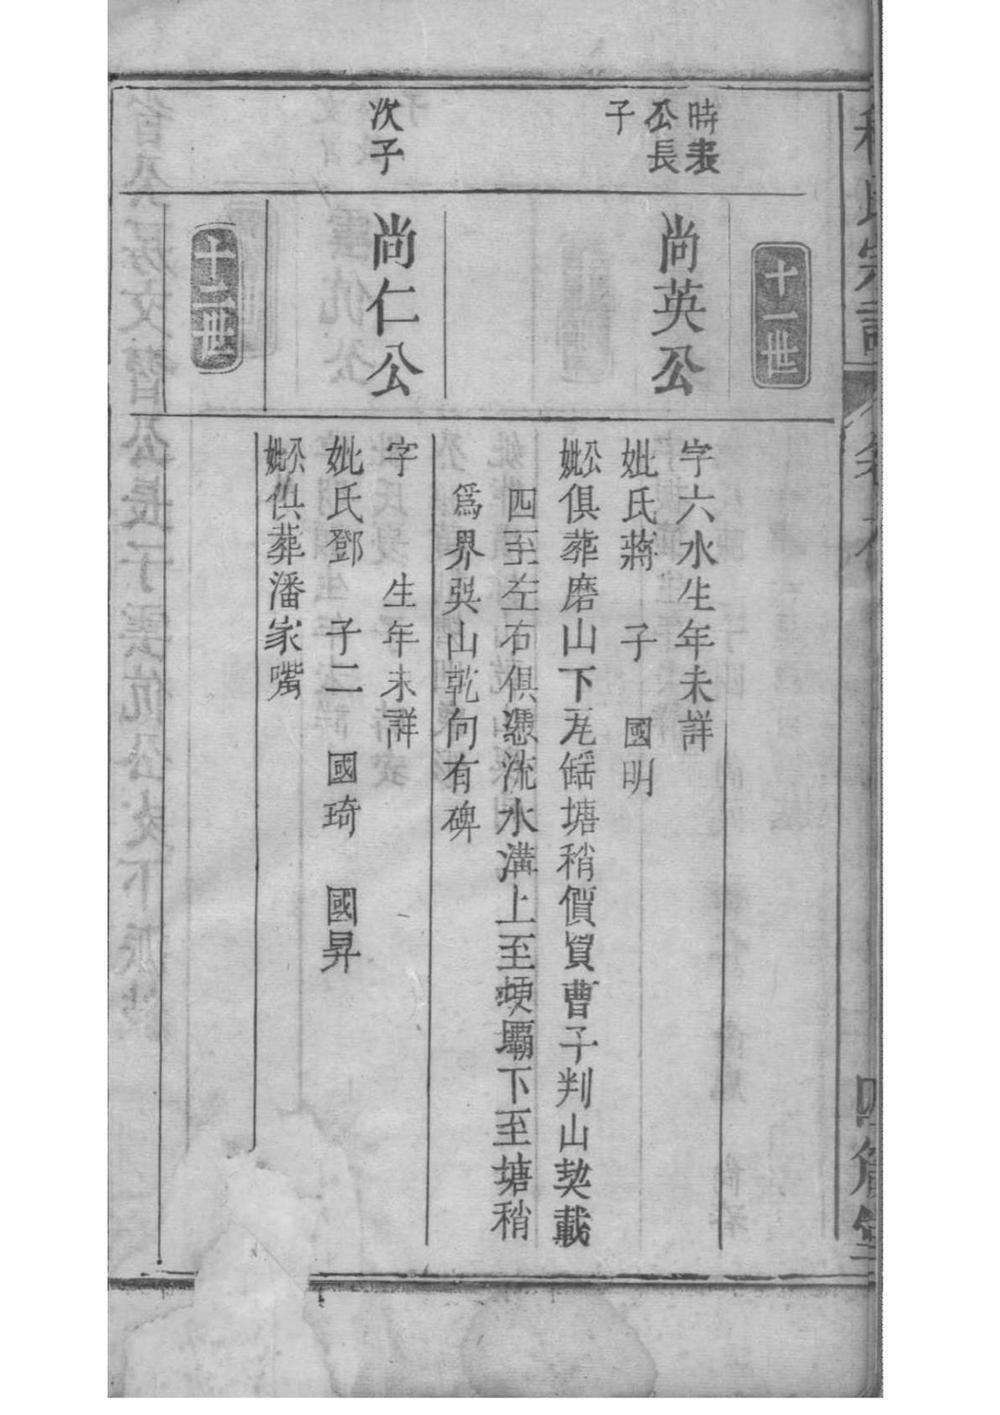 十一世
時表
公長
子
尚英公
字六水生年未詳
妣氏蔣　子　國明
公妣俱葬磨山下尾䍃塘稍價買曹子判山契載
四至左右俱憑流水溝上至埂壩下至塘稍
爲界巽山乾向有碑
次子
尚仁公
字　生年未詳
妣氏鄧　子二　國琦　國昇
公妣俱葬潘家嘴
十二世